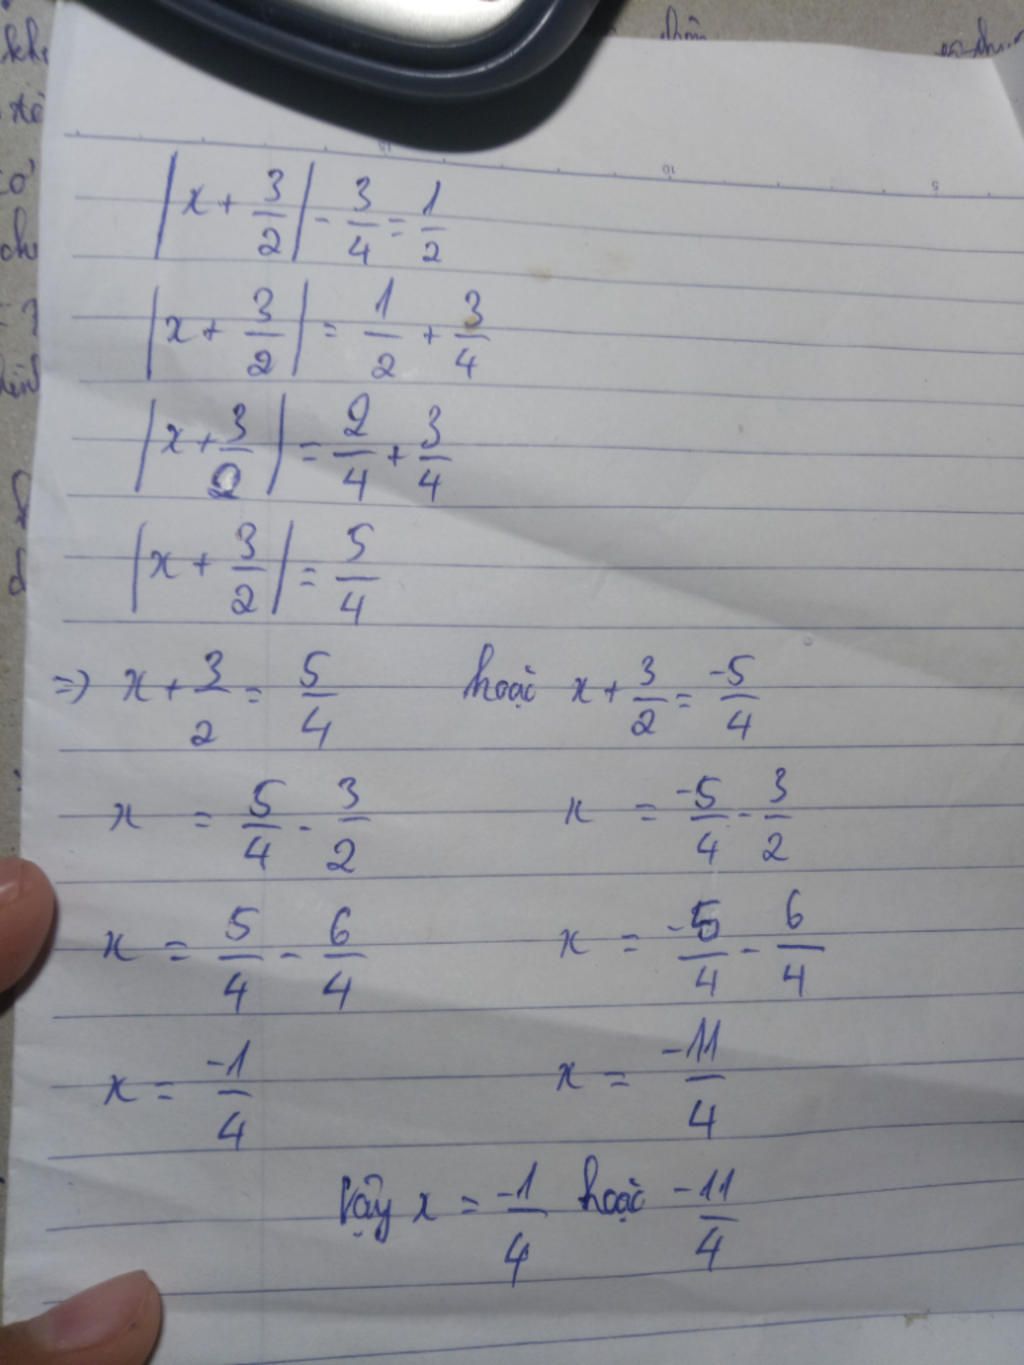 |x + 3/2| - 3/4 = 1/2
|x + 3/2| = 1/2 + 3/4
|x + 3/2| = 2/4 + 3/4
|x + 3/2| = 5/4
=> x + 3/2 = 5/4 hoặc x + 3/2 = -5/4
x = 5/4 - 3/2 x = -5/4 - 3/2
x = 5/4 - 6/4 x = -5/4 - 6/4
x = -1/4 x = -11/4
Vậy x = -1/4 hoặc -11/4